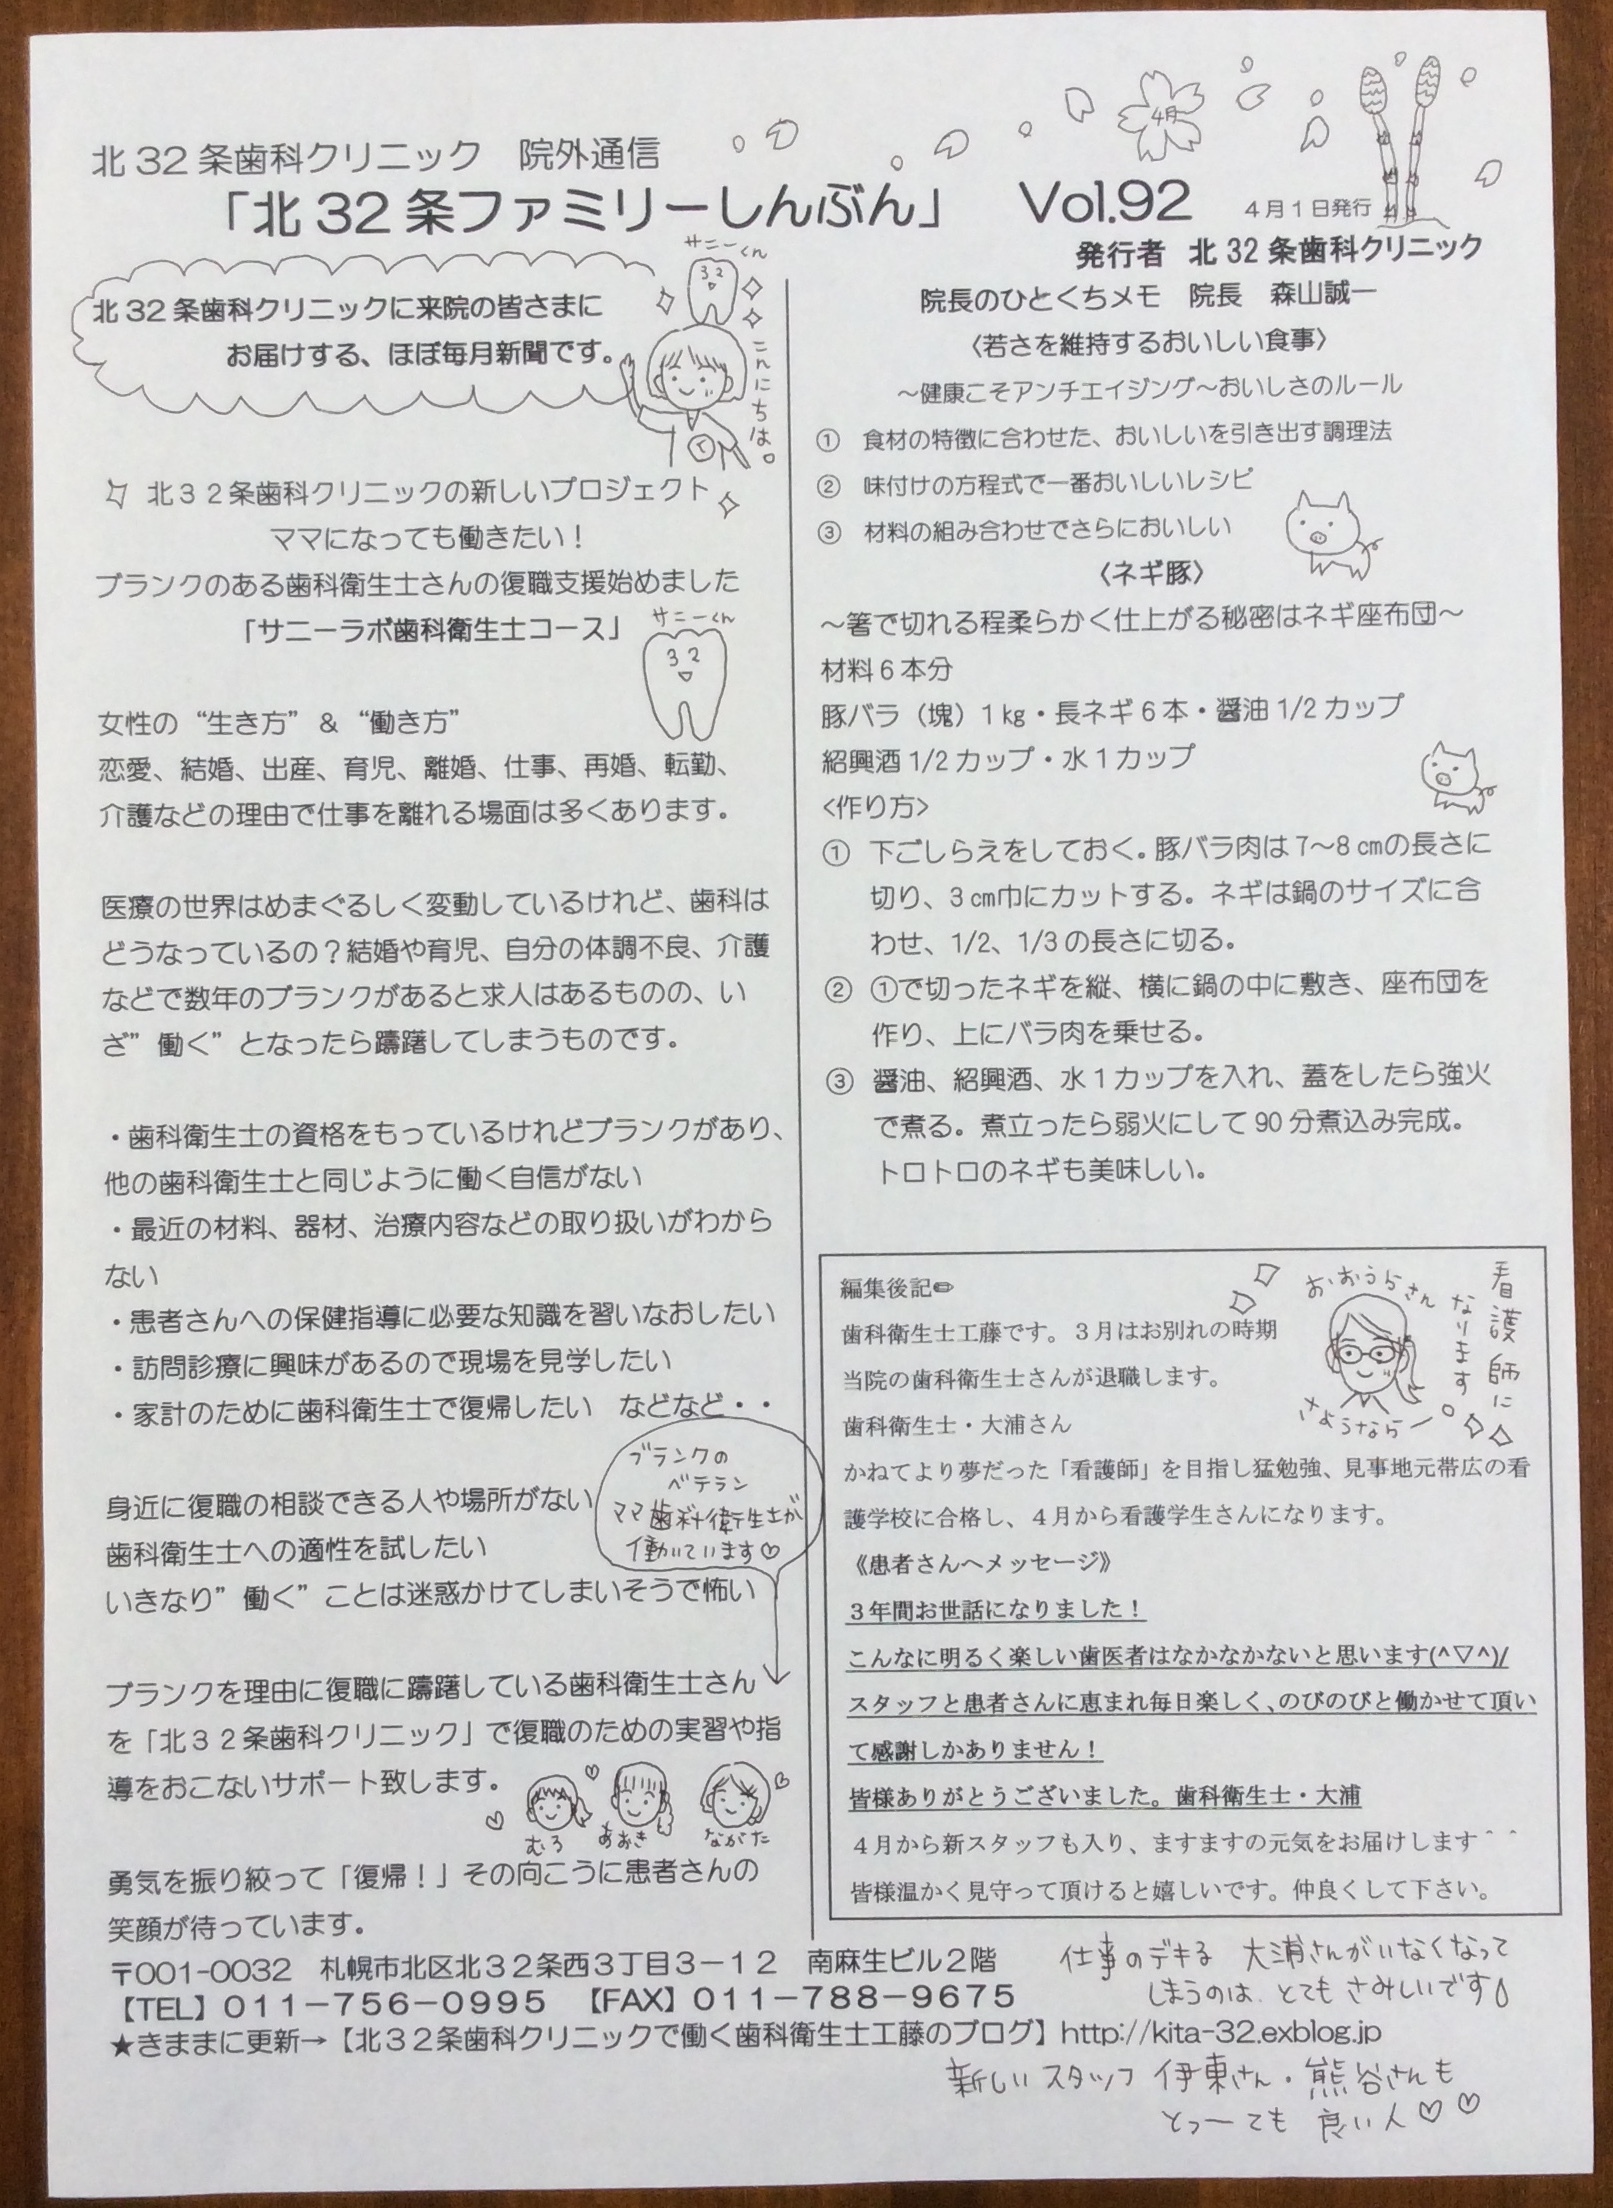 北32条歯科クリニック　院外通信
「北32条ファミリーしんぶん」　Vol.92　4月1日発行
4月
発行者　北32条歯科クリニック
サニーくん
32
北32条歯科クリニックに来院の皆さまに
お届けする、ほぼ毎月新聞です。
こんにちは。
く
北32条歯科クリニックの新しいプロジェクト
ママになっても働きたい！
ブランクのある歯科衛生士さんの復職支援始めました
「サニーラボ歯科衛生士コース」
サニーくん
32
女性の“生き方”＆“働き方”
恋愛、結婚、出産、育児、離婚、仕事、再婚、転勤、
介護などの理由で仕事を離れる場面は多くあります。
医療の世界はめまぐるしく変動しているけれど、歯科は
どうなっているの？結婚や育児、自分の体調不良、介護
などで数年のブランクがあると求人はあるものの、い
ざ”働く”となったら躊躇してしまうものです。
・歯科衛生士の資格をもっているけれどブランクがあり、
他の歯科衛生士と同じように働く自信がない
・最近の材料、器材、治療内容などの取り扱いがわから
ない
・患者さんへの保健指導に必要な知識を習いなおしたい
・訪問診療に興味があるので現場を見学したい
・家計のために歯科衛生士で復帰したい　などなど・・
ブランクの
ベテラン
ママ歯科衛生士が
働いています♡
身近に復職の相談できる人や場所がない
歯科衛生士への適性を試したい
いきなり”働く”ことは迷惑かけてしまいそうで怖い
ブランクを理由に復職に躊躇している歯科衛生士さん
を「北32条歯科クリニック」で復職のための実習や指
導をおこないサポート致します。
むろ　あおき　ながた
勇気を振り絞って「復帰！」その向こうに患者さんの
笑顔が待っています。
院長のひとくちメモ　院長　森山誠一
〈若さを維持するおいしい食事〉
～健康こそアンチエイジング～おいしさのルール
①　食材の特徴に合わせた、おいしいを引き出す調理法
②　味付けの方程式で一番おいしいレシピ
③　材料の組み合わせでさらにおいしい
〈ネギ豚〉
～箸で切れる程柔らかく仕上がる秘密はネギ座布団～
材料6本分
豚バラ（塊）1㎏・長ネギ6本・醤油1/2カップ
紹興酒1/2カップ・水1カップ
<作り方>
①　下ごしらえをしておく。豚バラ肉は7～8㎝の長さに
切り、3㎝巾にカットする。ネギは鍋のサイズに合
わせ、1/2、1/3の長さに切る。
②　①で切ったネギを縦、横に鍋の中に敷き、座布団を
作り、上にバラ肉を乗せる。
③　醤油、紹興酒、水1カップを入れ、蓋をしたら強火
で煮る。煮立ったら弱火にして90分煮込み完成。
トロトロのネギも美味しい。
編集後記✏
歯科衛生士工藤です。3月はお別れの時期
当院の歯科衛生士さんが退職します。
歯科衛生士・大浦さん
おおうらさん
看護師に
なります
さようなら―。
かねてより夢だった「看護師」を目指し猛勉強、見事地元帯広の看
護学校に合格し、4月から看護学生さんになります。
《患者さんへメッセージ》
3年間お世話になりました！
こんなに明るく楽しい歯医者はなかなかないと思います(^▽^)/
スタッフと患者さんに恵まれ毎日楽しく、のびのびと働かせて頂い
て感謝しかありません！
皆様ありがとうございました。歯科衛生士・大浦
4月から新スタッフも入り、ますますの元気をお届けします＾＾
皆様温かく見守って頂けると嬉しいです。仲良くして下さい。
仕事のデキる　大浦さんがいなくなって
しまうのは、とてもさみしいです
〒001-0032　札幌市北区北32条西3丁目3－12　南麻生ビル2階
【TEL】011－756－0995　【FAX】011－788－9675
★きままに更新→【北32条歯科クリニックで働く歯科衛生士工藤のブログ】http://kita-32.exblog.jp
新しいスタッフ　伊東さん・熊谷さんも
とっーても　良い人♡♡